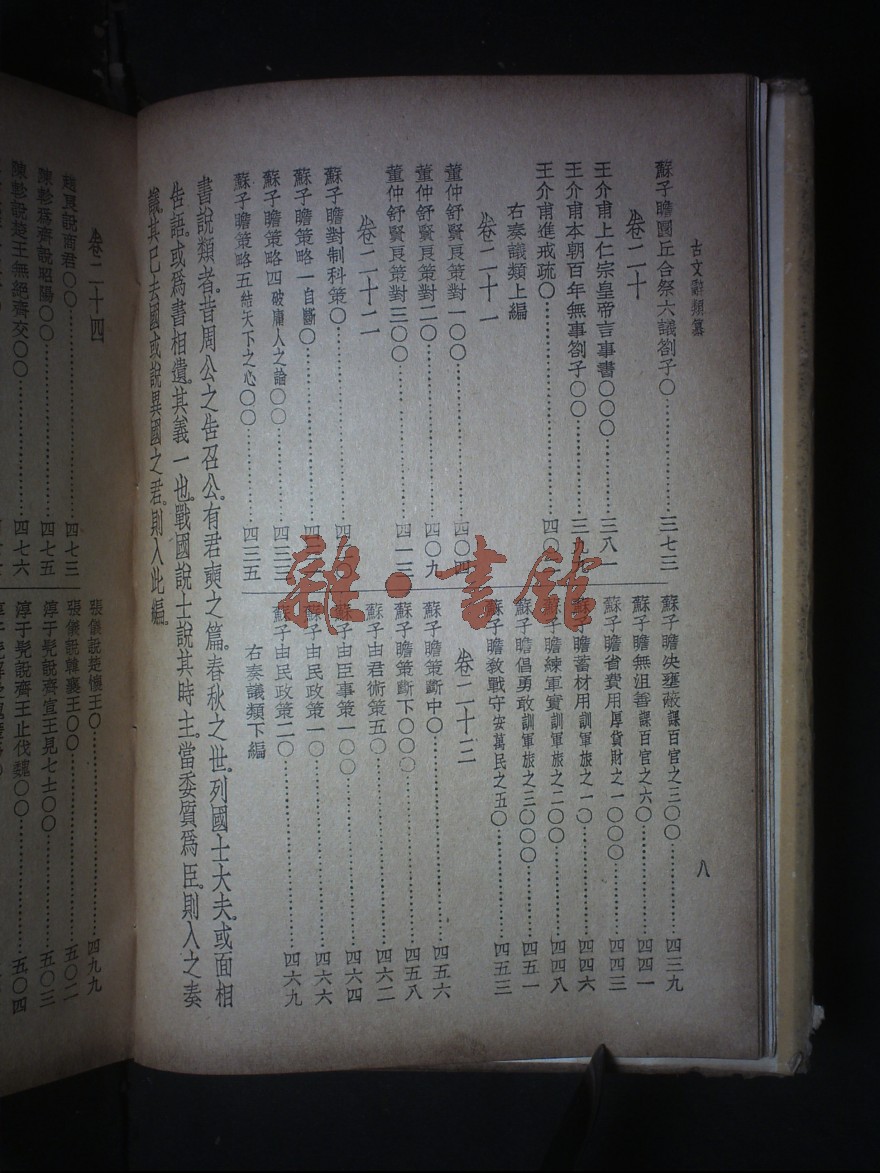 古文辭類纂
八
蘇子瞻圜丘合祭六議劄子〇……三七三
卷二十
王介甫上仁宗皇帝言事書〇〇〇……三八一
王介甫本朝百年無事劄子〇〇……三九九
王介甫進戒疏〇……四〇
右奏議類上編
卷二十一
董仲舒賢良策對一〇〇……四〇四
董仲舒賢良策對二〇……四〇九
董仲舒賢良策對三〇〇……四一三
卷二十二
蘇子瞻對制科策〇……四二〇
蘇子瞻策略一自斷〇……四三
蘇子瞻策略四破庸人之論〇〇……四三三
蘇子瞻策略五結天下之心〇〇……四三五
蘇子瞻決壅蔽課百官之三〇〇……四三九
蘇子瞻無沮善課百官之六〇……四四一
蘇子瞻省費用厚貨財之一〇〇〇……四四三
蘇子瞻蓄材用訓軍旅之一〇……四四六
蘇子瞻練軍實訓軍旅之二〇〇……四四八
蘇子瞻倡勇敢訓軍旅之三〇〇〇……四五一
蘇子瞻教戰守安萬民之五〇……四五三
卷二十三
蘇子瞻策斷中〇……四五六
蘇子瞻策斷下〇〇〇……四五八
蘇子由君術策五〇……四六二
蘇子由臣事策一〇〇……四六四
蘇子由民政策一〇……四六六
蘇子由民政策二〇……四六九
右奏議類下編
書說類者。昔周公之告召公。有君奭之篇。春秋之世。列國士大夫。或面相
告語。或爲書相遺。其義一也。戰國說士說其時主。當委質爲臣。則入之奏
議。其已去國或說異國之君。則入此編。
卷二十四
趙良說商君〇〇……四七三
陳軫爲齊說昭陽〇〇……四七五
陳軫說楚王無絕齊交〇〇……四七六
張儀說楚懷王〇……四九九
張儀說韓襄王〇〇……五〇二
淳于髡說齊宣王見七士〇〇……五〇三
淳于髡說齊王止伐魏〇〇……五〇四
雜·書館